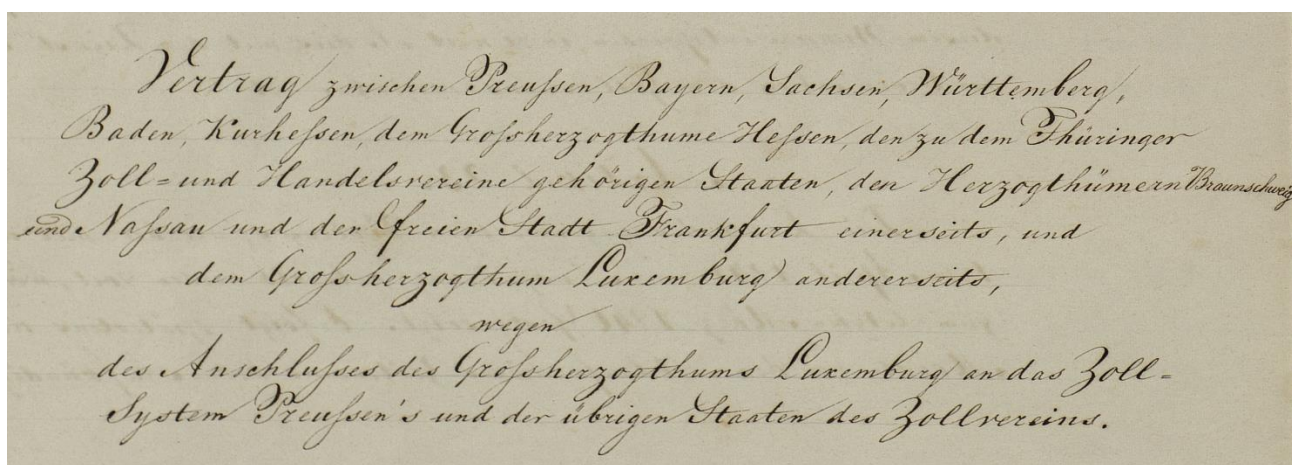 Vertrag zwischen Preußen, Bayern, Sachsen, Württemberg,
Baden, Kurheßen, dem Großherzogthume Heßen, den zu dem Thüringer
Zoll= und Handelsvereine gehörigen Staaten, den Herzogthümern Braunschweig
und Naßau und der freien Stadt Frankfurt einerseits, und
dem Großherzogthum Luxemburg andererseits,
wegen
des Anschlußes des Großherzogthums Luxemburg an das Zoll=
System Preußen's und der übrigen Staaten des Zollvereins.